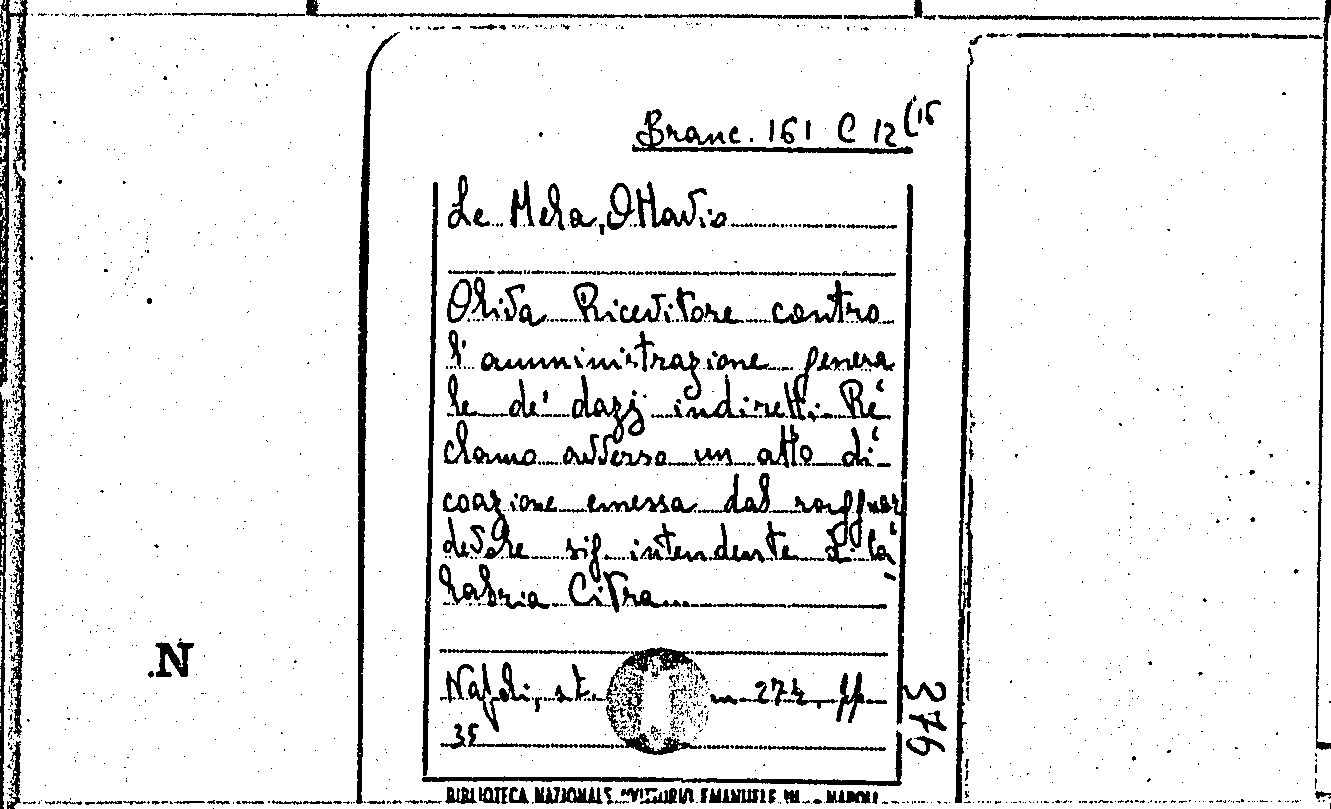 Branc. 161 C 12 (15
Le Mera, Ottavio
Oliva Ricevitore contro
l'amministrazione genera
le de' dazj indiretti. Re
clamo avverso un atto di
coazione emessa dal ragguar
devole sig. intendente di Ca
labria Citra...
Napoli, st. 274, pp.
35
376
.N
BIBLIOTECA NAZIONALE "VITTORIO EMANUELE III" - NAPOLI